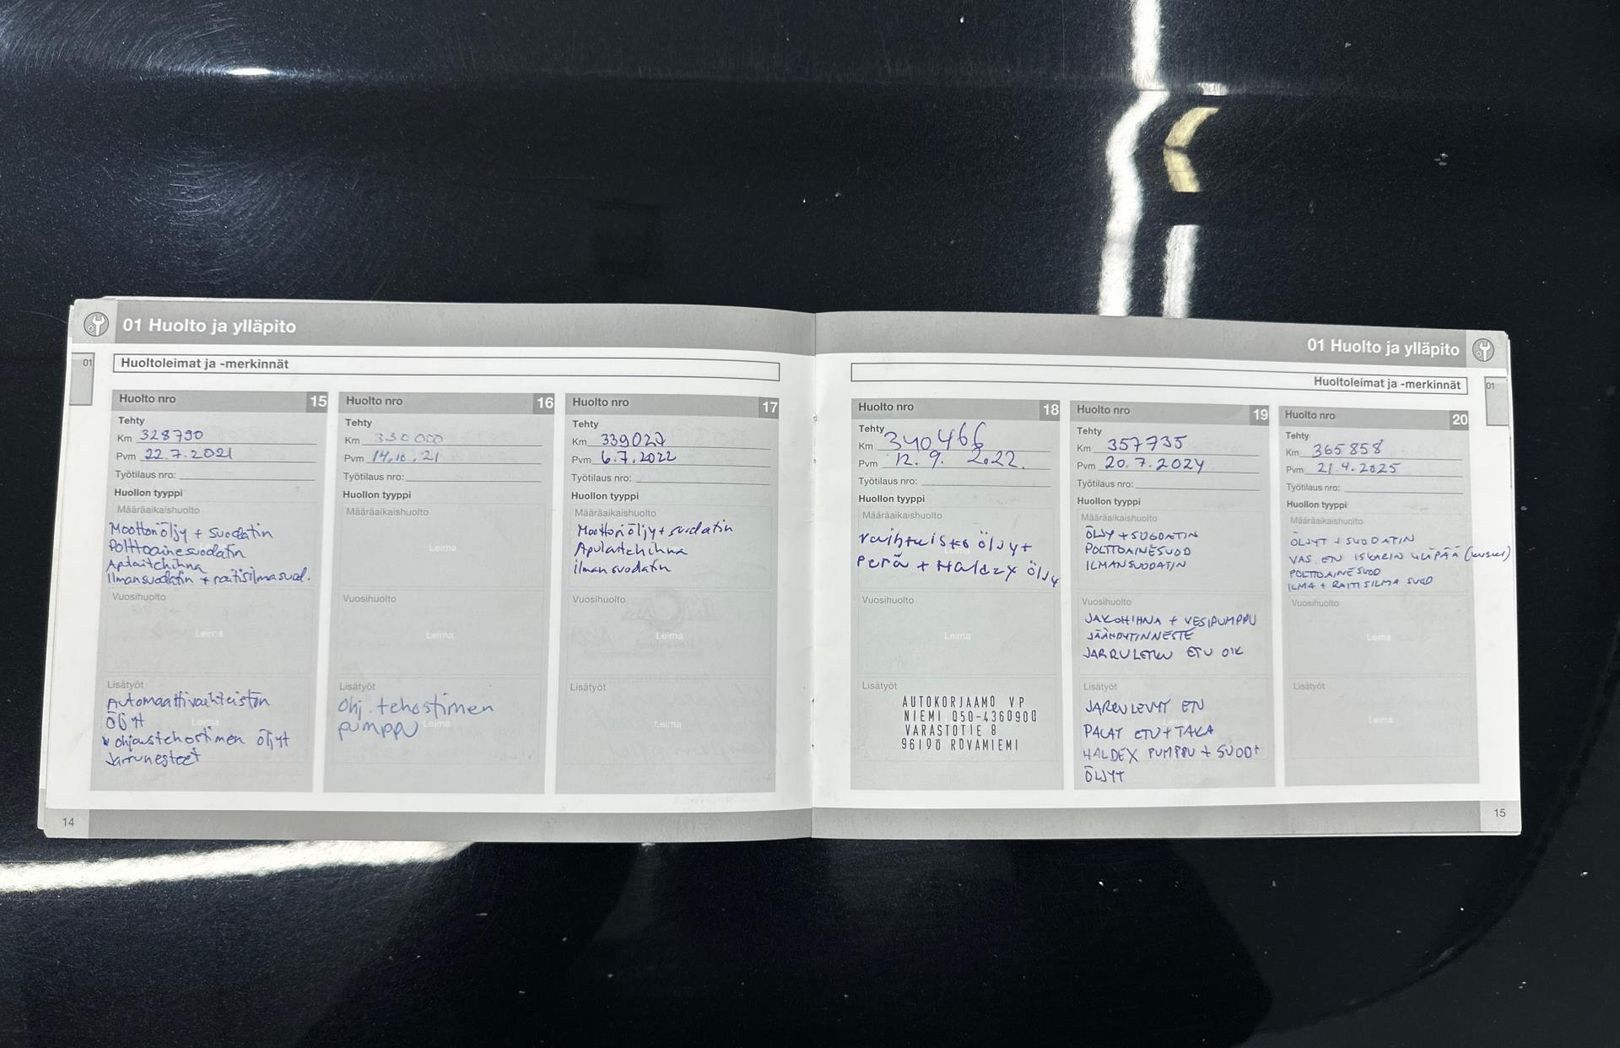 01 Huolto ja ylläpito
01
Huoltoleimat ja -merkinnät
Huolto nro 15
Tehty
Km 328790
Pvm 22.7.2021
Työtilaus nro:
Huollon tyyppi
Määräaikaishuolto
Moottoriöljy + suodatin
Polttoainesuodatin
Apulaitehihna
Ilmansuodatin + raitisilmasuod.
Vuosihuolto
Leima
Lisätyöt
Automaattivaihteiston
öljyt
Leima
ohjaustehostimen öljyt
Jarrunesteet
Huolto nro 16
Tehty
Km 330000
Pvm 14.10.21
Työtilaus nro:
Huollon tyyppi
Määräaikaishuolto
Leima
Vuosihuolto
Leima
Lisätyöt
Ohj. tehostimen
pumppu
Leima
Huolto nro 17
Tehty
Km 339027
Pvm 6.7.2022
Työtilaus nro:
Huollon tyyppi
Määräaikaishuolto
Moottoriöljy + suodatin
Apulaitehihna
ilmansuodatin
Vuosihuolto
Leima
Lisätyöt
Leima
14
01 Huolto ja ylläpito
Huoltoleimat ja -merkinnät
01
Huolto nro 18
Tehty
Km 340466
Pvm 12.9.2022.
Työtilaus nro:
Huollon tyyppi
Määräaikaishuolto
vaihteisto öljyt
Perä + Haldex öljy
Vuosihuolto
Leima
Lisätyöt
AUTOKORJAAMO VP
NIEMI 050-4360900
VARASTOTIE 8
96190 ROVAMIEMI
Huolto nro 19
Tehty
Km 357735
Pvm 20.7.2024
Työtilaus nro:
Huollon tyyppi
Määräaikaishuolto
ÖLJY + SUODATIN
POLTTOAINESUOD
ILMANSUODATIN
Vuosihuolto
JAKOHIHNA + VESIPUMPPU
JÄÄHDYTINNESTE
JARRULETKU ETU OIK
Lisätyöt
JARRULEVYT ETU
PALAT ETU + TAKA
HALDEX PUMPPU + SUOD +
ÖLJYT
Huolto nro 20
Tehty
Km 365858
Pvm 21.4.2025
Työtilaus nro:
Huollon tyyppi
Määräaikaishuolto
ÖLJYT + SUODATIN
VAS. ETU ISKARIN YLÄPÄÄ
POLTTOAINE SUOD
ILMA + RAITISILMA SUOD
Vuosihuolto
Leima
Lisätyöt
Leima
15